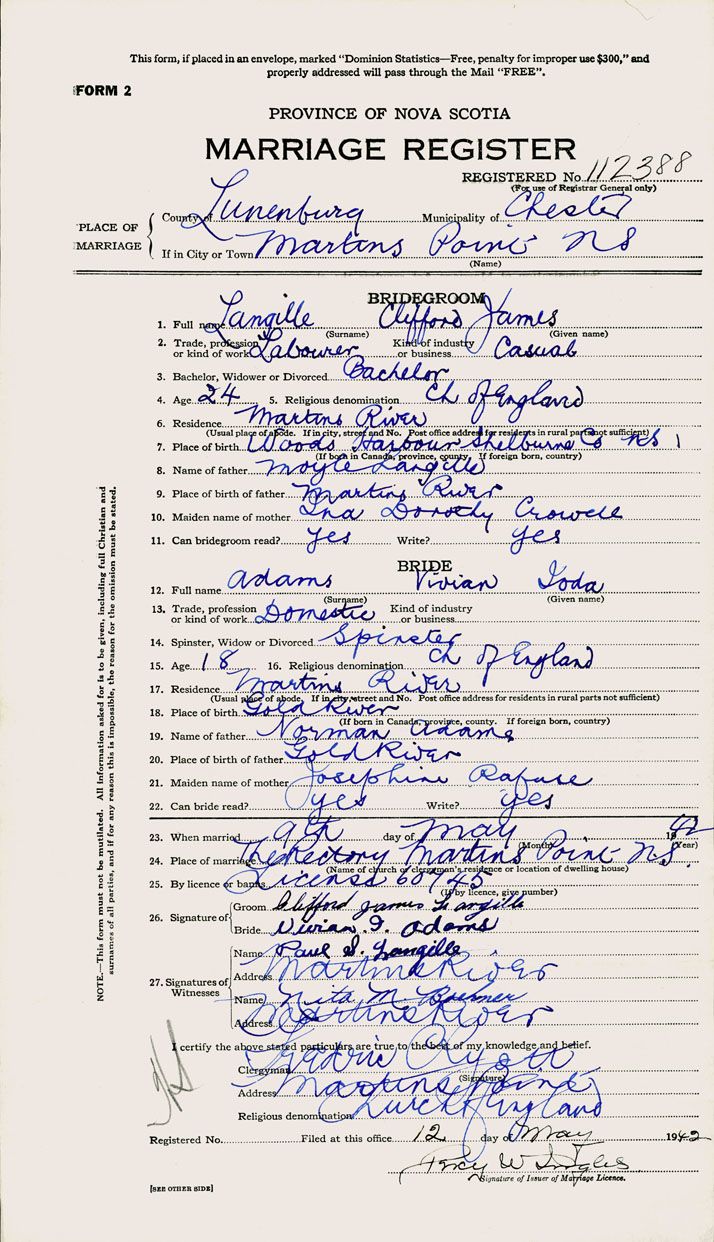 This form, if placed in an envelope, marked "Dominion Statistics—Free, penalty for improper use $300," and
properly addressed will pass through the Mail "FREE".
FORM 2
PROVINCE OF NOVA SCOTIA
MARRIAGE REGISTER
REGISTERED No. 112388
(For use of Registrar General only)
PLACE OF MARRIAGE
County of Lunenburg Municipality of Chester
If in City or Town Martins Point NS
(Name)
BRIDEGROOM
1. Full name Langille Clifford James
(Surname) (Given name)
2. Trade, profession or kind of work Labourer Kind of industry or business Casual
3. Bachelor, Widower or Divorced Bachelor
4. Age 24 5. Religious denomination Ch of England
6. Residence Martins River
(Usual place of abode. If in city, street and No. Post office address for residents in rural parts not sufficient)
7. Place of birth Woods Harbour Shelburne Co NS
(If born in Canada, province, county. If foreign born, country)
8. Name of father Moyle Langille
9. Place of birth of father Martins River
10. Maiden name of mother Ina Dorothy Crowell
11. Can bridegroom read? Yes Write? yes
BRIDE
12. Full name Adams Vivian Ioda
(Surname) (Given name)
13. Trade, profession or kind of work Domestic Kind of industry or business
14. Spinster, Widow or Divorced Spinster
15. Age 18 16. Religious denomination Ch of England
17. Residence Martins River
(Usual place of abode. If in city, street and No. Post office address for residents in rural parts not sufficient)
18. Place of birth Gold River
(If born in Canada, province, county. If foreign born, country)
19. Name of father Norman Adams
20. Place of birth of father Gold River
21. Maiden name of mother Josephine Rafuse
22. Can bride read? yes Write? yes
23. When married 9th day of May 1942
(Month) (Year)
24. Place of marriage The Rectory Martins Point N.S.
(Name of church or clergyman's residence or location of dwelling house)
25. By licence or banns License 60745
(If by licence, give number)
26. Signature of
Groom Clifford James Langille
Bride Vivian I. Adams
27. Signatures of Witnesses
Name Paul S. Langille
Address Martins River
Name Nita M.
Address Martins River
I certify the above stated particulars are true to the best of my knowledge and belief.
Clergyman
(Signature)
Address Martins Point
Religious denomination Church England
Registered No. Filed at this office 12 day of May 1942
Percy W
Signature of Issuer of Marriage Licence.
[SEE OTHER SIDE]
NOTE.—This form must not be mutilated. All information asked for is to be given, including full Christian and
surnames of all parties, and if for any reason this is impossible, the reason for the omission must be stated.